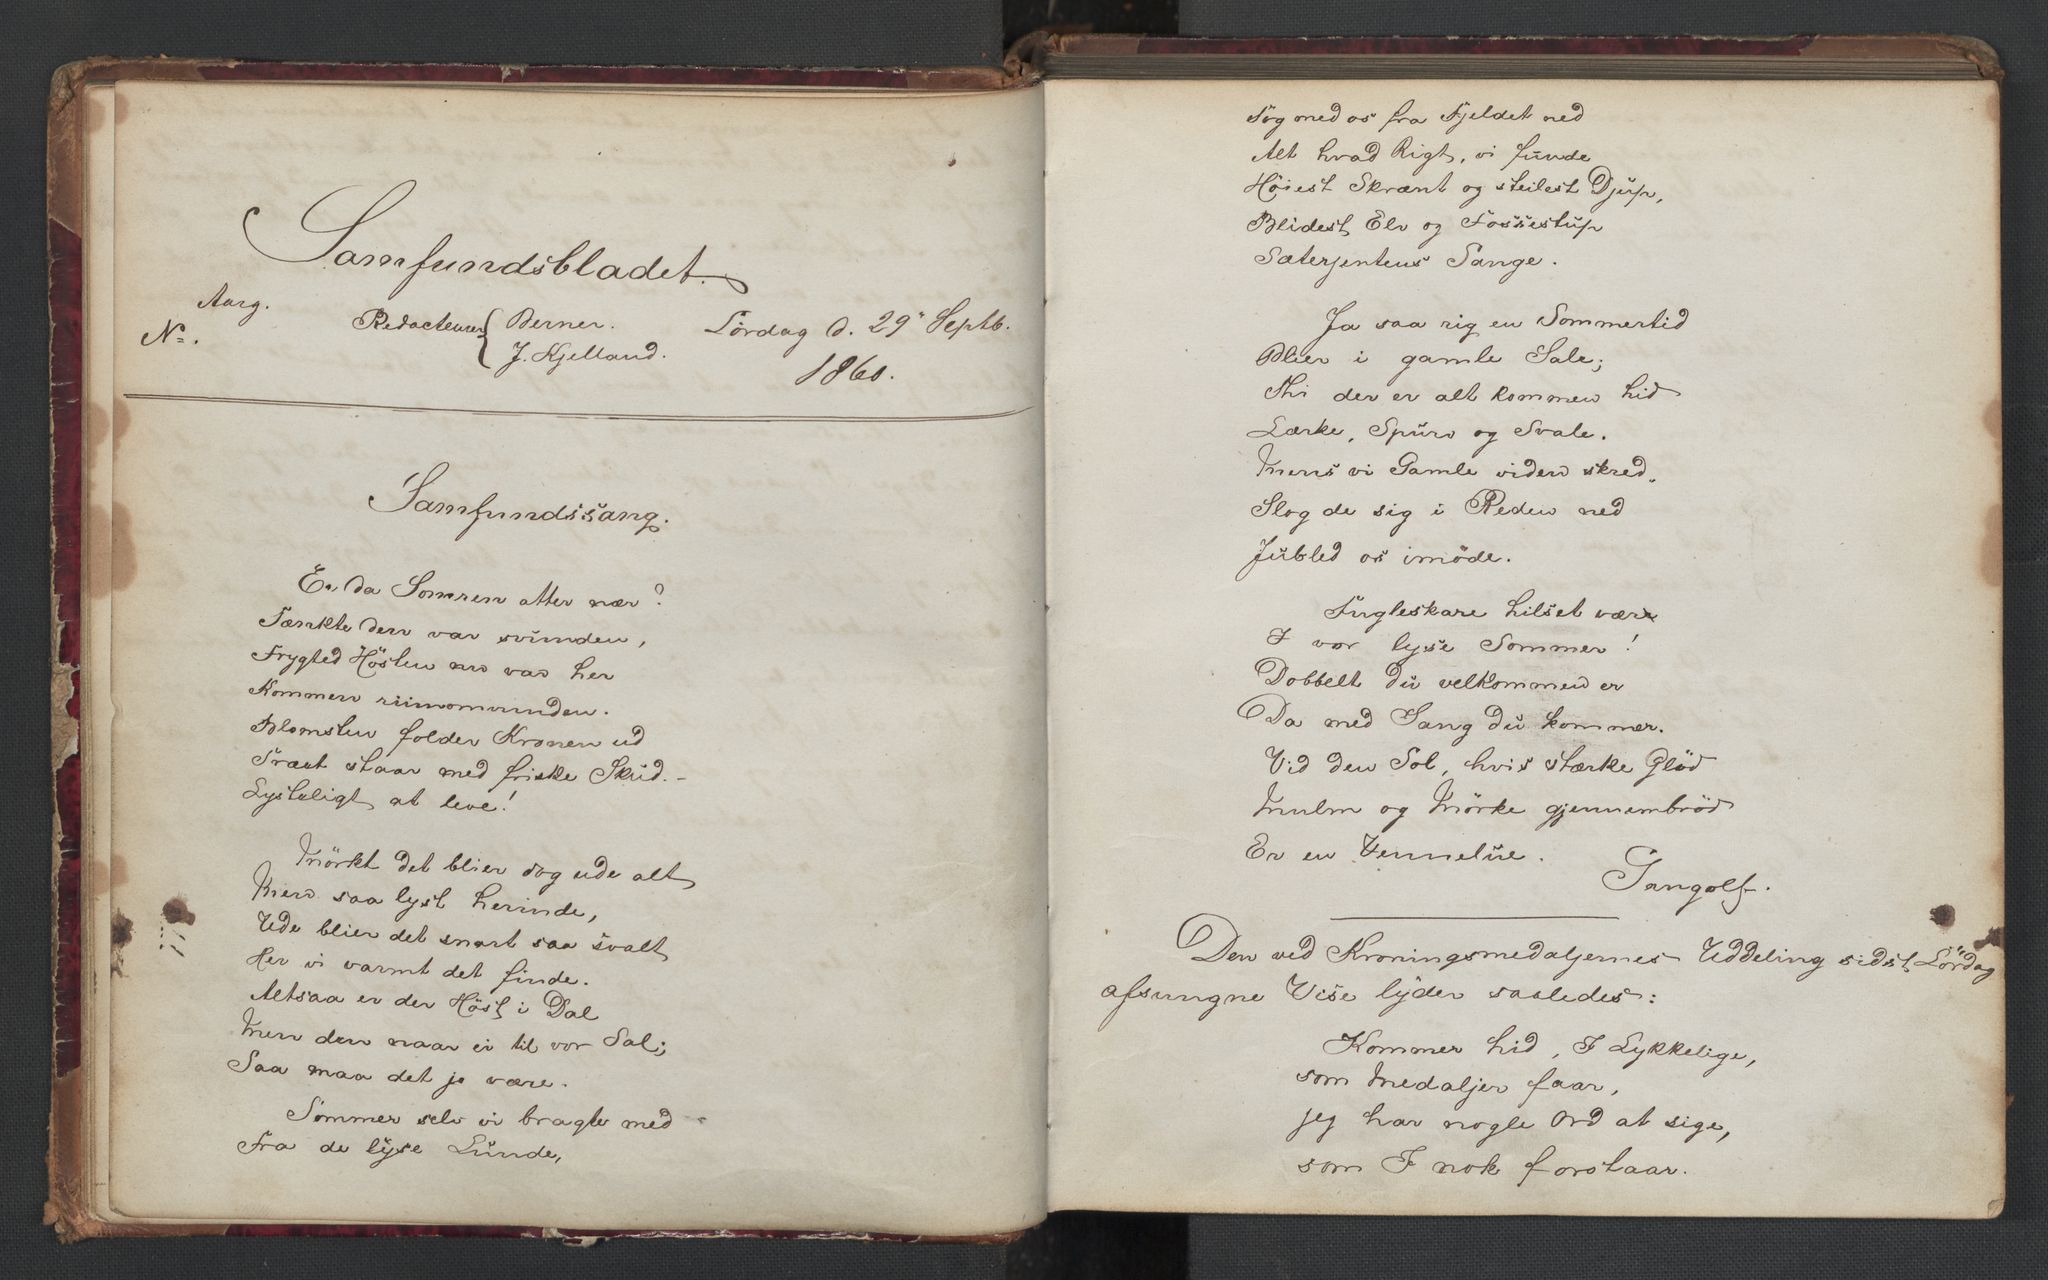 Samfundsbladet.
Aarg.
No.
Redacteurer { Berner.
J. Kjelland.
Lördag d. 29' Septb.
1860.
Samfundssang.
Er da Somren atter nær?
Tænkte den var svunden,
Frygted Hösten nu var her
Kommen riimomvunden.
Blomsten folder Kronen ud
Træet staar med friske Skud. -
Lysteligt at leve!
Mörkt det blier dog ude alt
Men saa lyst herinde,
Ude blier det snart saa svalt
Her vi varmt det finde.
Altsaa er der Höst i Dal
Men den naar ei til vor Sal;
Saa maa det jo være.
Sommer selv vi bragte med
Fra de lyse Lunde,
Tog med os fra Fjeldet ned
Alt hvad Rigt, vi funde
Höiest Skrænt og steilest Djup,
Blidest Elv og Fossestup
Sæterjentens Sange.
Ja saa rig en Sommertid
Blier i gamle Sale;
Thi der er alt kommen hid
Lærke, Spurv og Svale.
Mens vi Gamle viden skred,
Slog de sig i Reden ned
Jubled os imöde.
Fugleskare hilset være
I vor lyse Sommer!
Dobbelt du velkommen er
Da med Sang du kommer.
Vid den Sol, hvis stærke Glöd
Mulm og Mörke gjennembröd
Er en Vennelue.
Sangolf.
Den ved Kroningsmedaljernes Uddeling sidst Lördag
afsungne Vise lyder saaledes:
Kommer hid, I Lykkelige,
som Medaljer faar,
jeg har nogle Ord at sige,
som I nok forstaar.